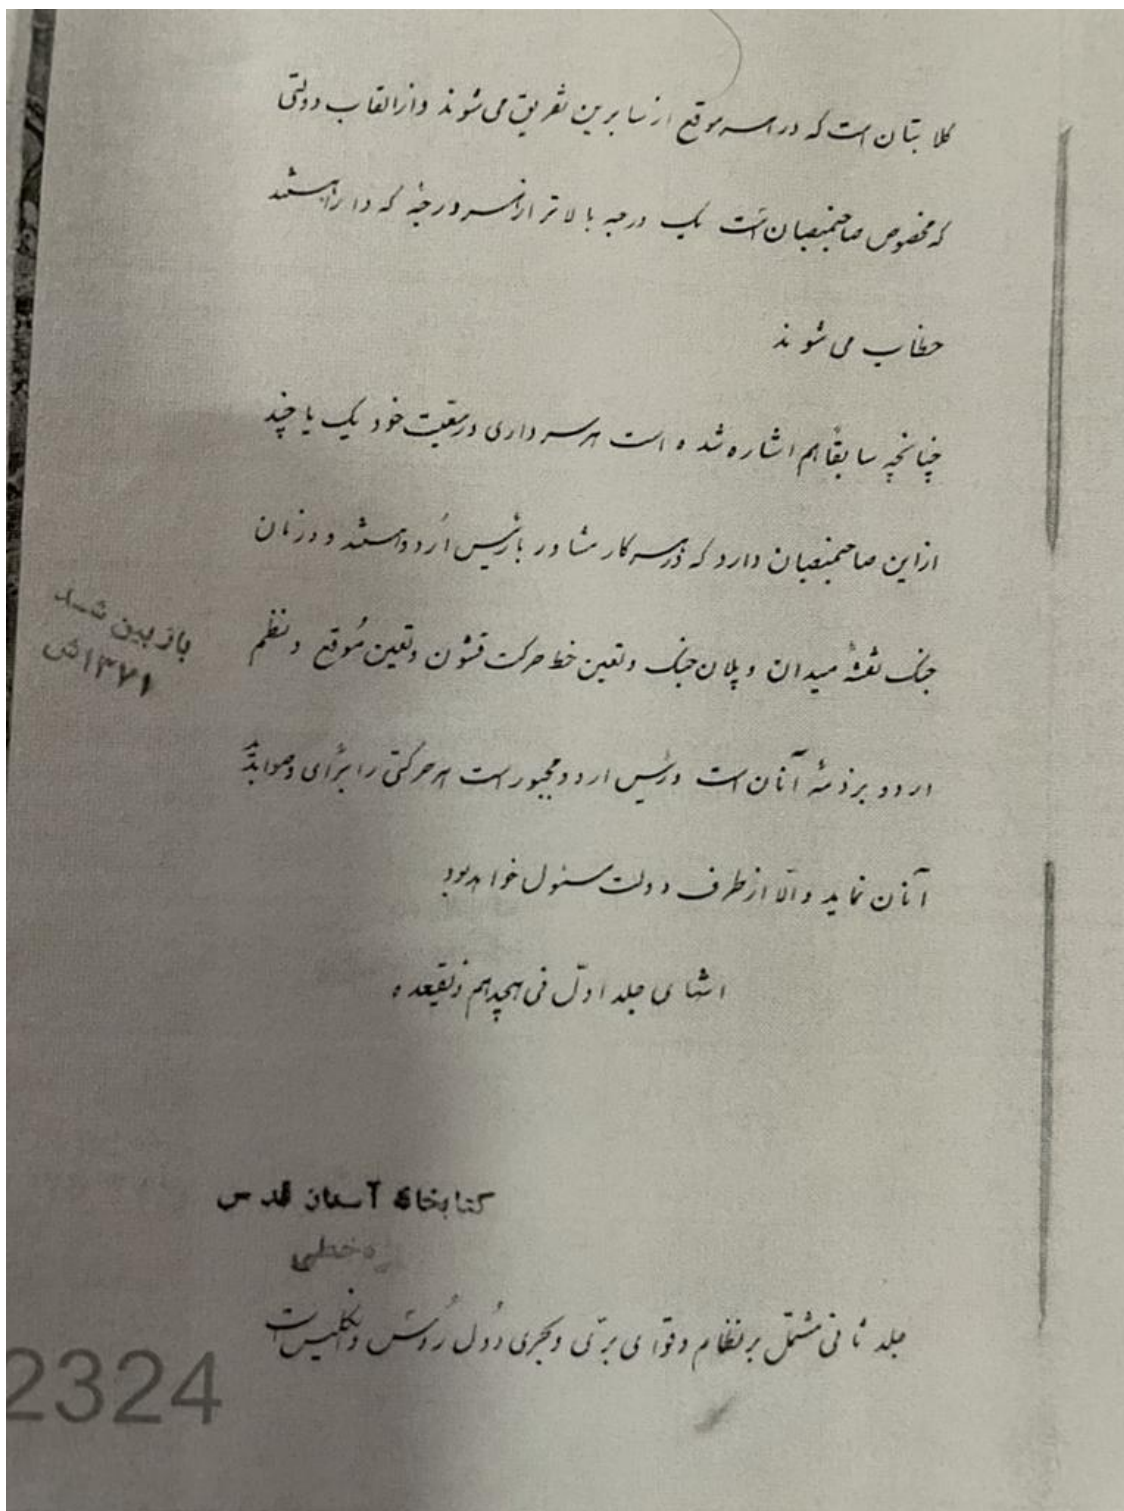 کلابتان است که در اسر موقع از سایرین تفریق می‌شوند و از القاب دولتی
که مخصوص صاحبمنصبان است یک درجه بالاتر از هر درجهٔ که دارا هستند
خطاب می‌شوند
چنانچه سابقاً هم اشاره شده است هر سرداری در معیت خود یک یا چند
از این صاحبمنصبان دارد که در هر کار مشاور با رئیس اُردو هستند و در زمان
جنگ نقشهٔ میدان و پلان جنگ و تعین خط حرکت قشون و تعین مُوقع و نظم
اردو بر ذمهٔ آنان است و رئیس اردو مجبور است هر حرکتی را برأی و صوابدید
آنان نماید و الّا از طرف دولت مسئول خواهد بود
انتهای جلد اوّل فی هیجدهم ذیقعده
باز بین شد
۱۳۷۱ش
کتابخانه آستان قدس
خطی
جلد ثانی مشتمل بر نظام و قوای برّی و بحری دُول رُوس و انگلیس است
2324